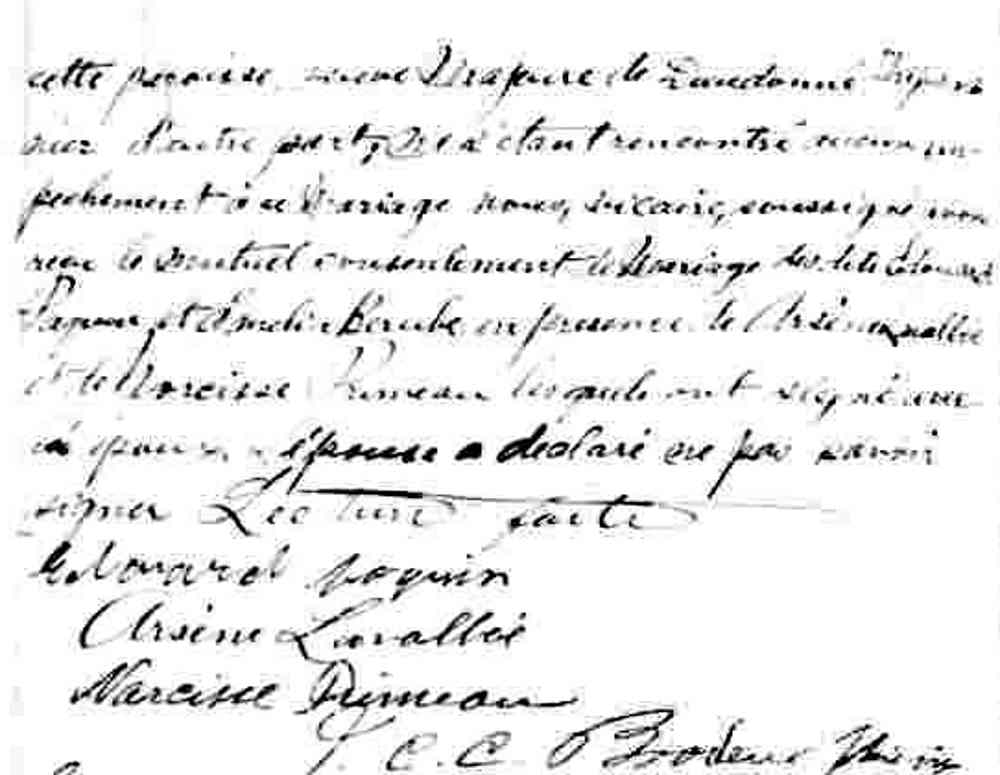 cette paroisse, veuve Drapeau de Dieudonné
d'autre part, ne s'étant rencontré aucun em-
pêchement à ce Mariage nous, vicaire, soussigné avons
reçu le mutuel consentement de Mariage des dits Edouard
Paquin et Amelie Berube en presence de Arsène Lavallée
et de Narcisse Primeau lesquels ont signé avec
épouse a déclaré ne pas savoir
signer Lecture faite
Edouard paquin
Arsène Lavallée
Narcisse Primeau
C. C. Brodeur